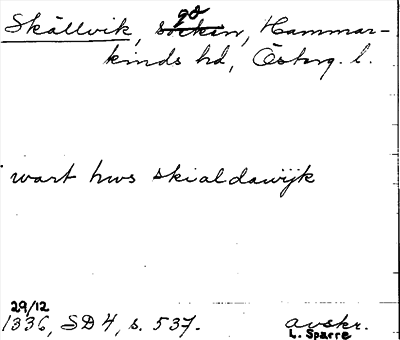 Skällvik, socken, gd Hammar-
kinds hd, Österg. l.
wart hws skialdawijk
29/12
1336, SD 4, s. 537.
avskr.
L. Sparre